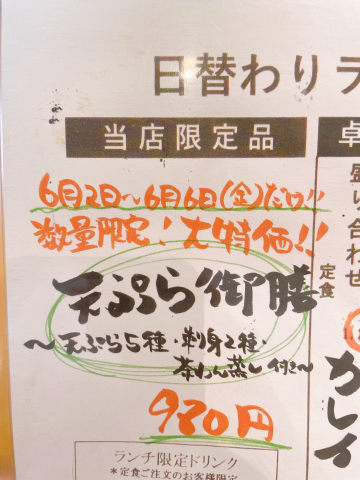 日替わりラ
当店限定品
6月2日〜6月6日(金)だけ!!
数量限定!大特価!!
天ぷら御膳
〜天ぷら5種・刺身2種・
茶わん蒸し付き〜
920円
ランチ限定ドリンク
*定食ご注文のお客様限定
卓
盛り合わせ
定食
カレイ